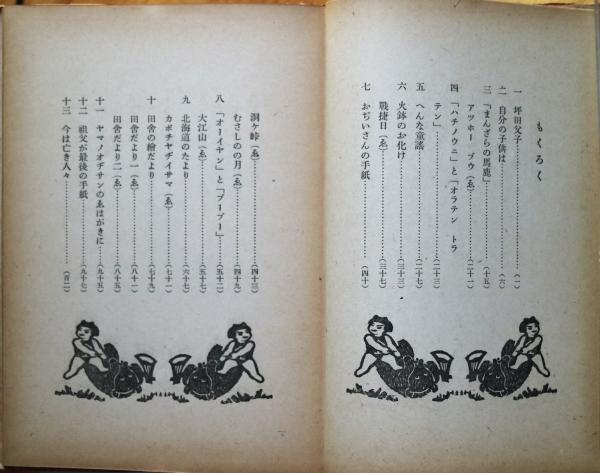 もくろく
一 坪田父子……………（一）
二 自分の子供は……………（六）
三 「まんざらの馬鹿」……………（十五）
アツホー ヅウ（ゑ）……………（二十一）
四 「ハチノウニ」と「オラテン トラ
テン」……………（二十三）
五 へんな童謠……………（二十七）
六 火鉢のお化け……………（三十三）
戰捷日（ゑ）……………（三十七）
七 おぢいさんの手紙……………（四十）
洞ケ峠（ゑ）……………（四十三）
むさしのの月（ゑ）……………（四十九）
八 「オーイヤン」と「ブーブー」……………（五十二）
大江山（ゑ）……………（五十七）
九 北海道のたより……………（六十七）
カボチヤヂイサマ（ゑ）……………（七十一）
十 田舎の繪だより……………（七十九）
田舎だより一（ゑ）……………（八十一）
田舎だより二（ゑ）……………（八十五）
十一 ヤマノオヂサンのゑはがきに……………（九十五）
十二 祖父が最後の手紙……………（九十七）
十三 今は亡き人々……………（百二）